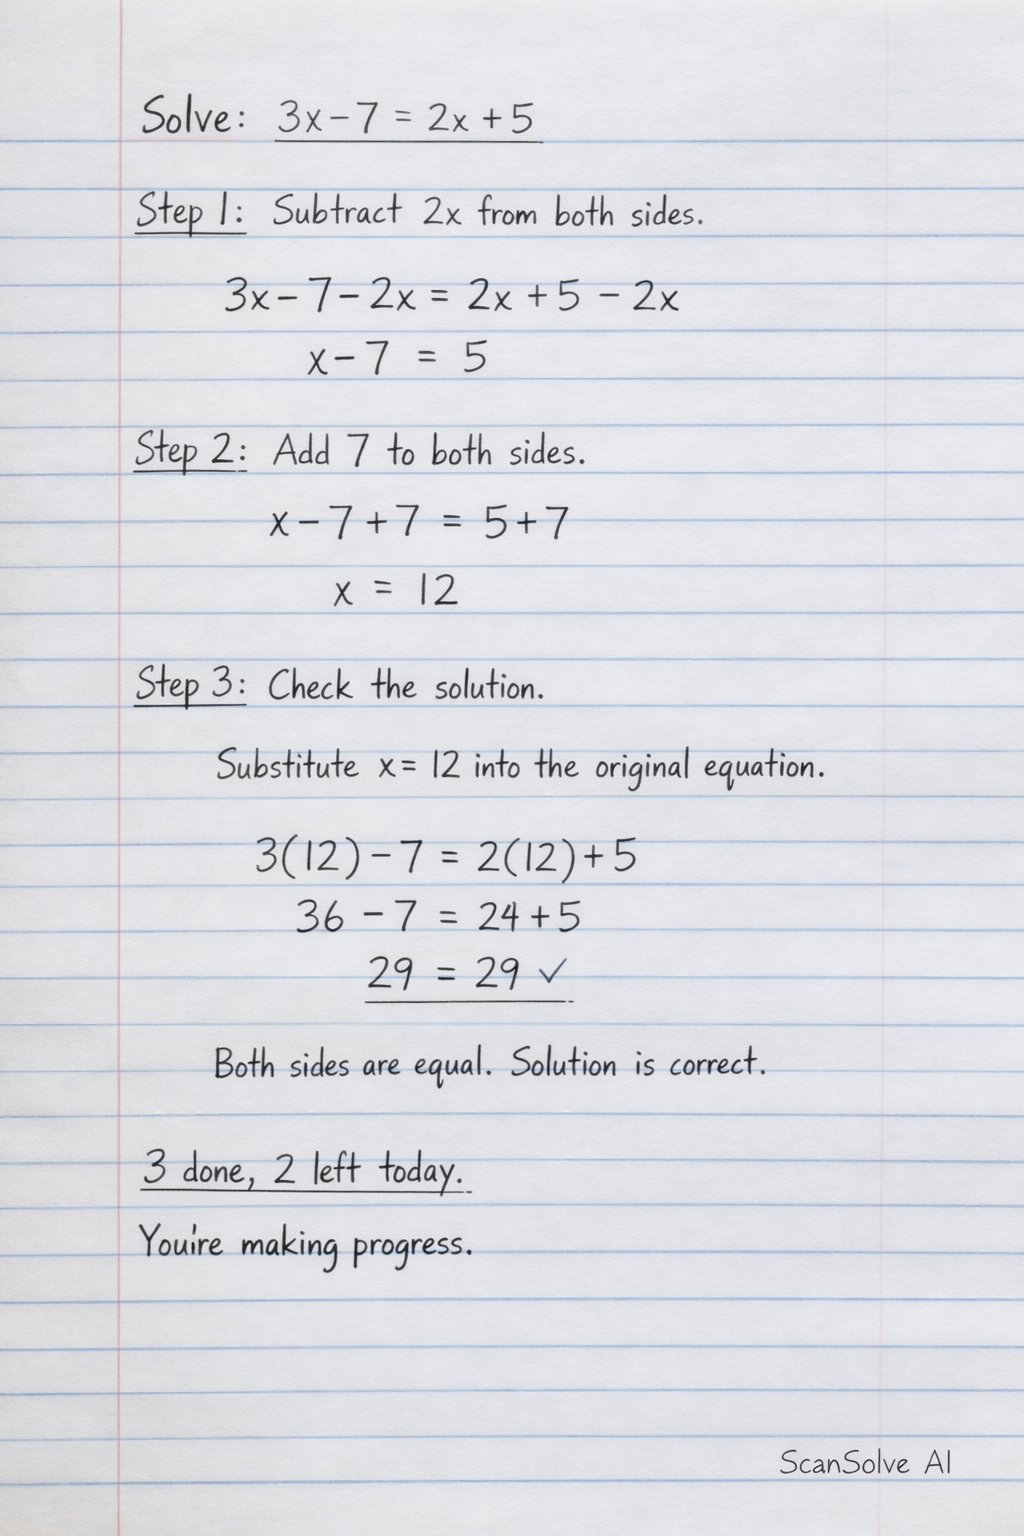 Solve: 3x - 7 = 2x + 5
Step 1: Subtract 2x from both sides.
3x - 7 - 2x = 2x + 5 - 2x
x - 7 = 5
Step 2: Add 7 to both sides.
x - 7 + 7 = 5 + 7
x = 12
Step 3: Check the solution.
Substitute x = 12 into the original equation.
3(12) - 7 = 2(12) + 5
36 - 7 = 24 + 5
29 = 29 ✓
Both sides are equal. Solution is correct.
3 done, 2 left today.
You're making progress.
ScanSolve AI